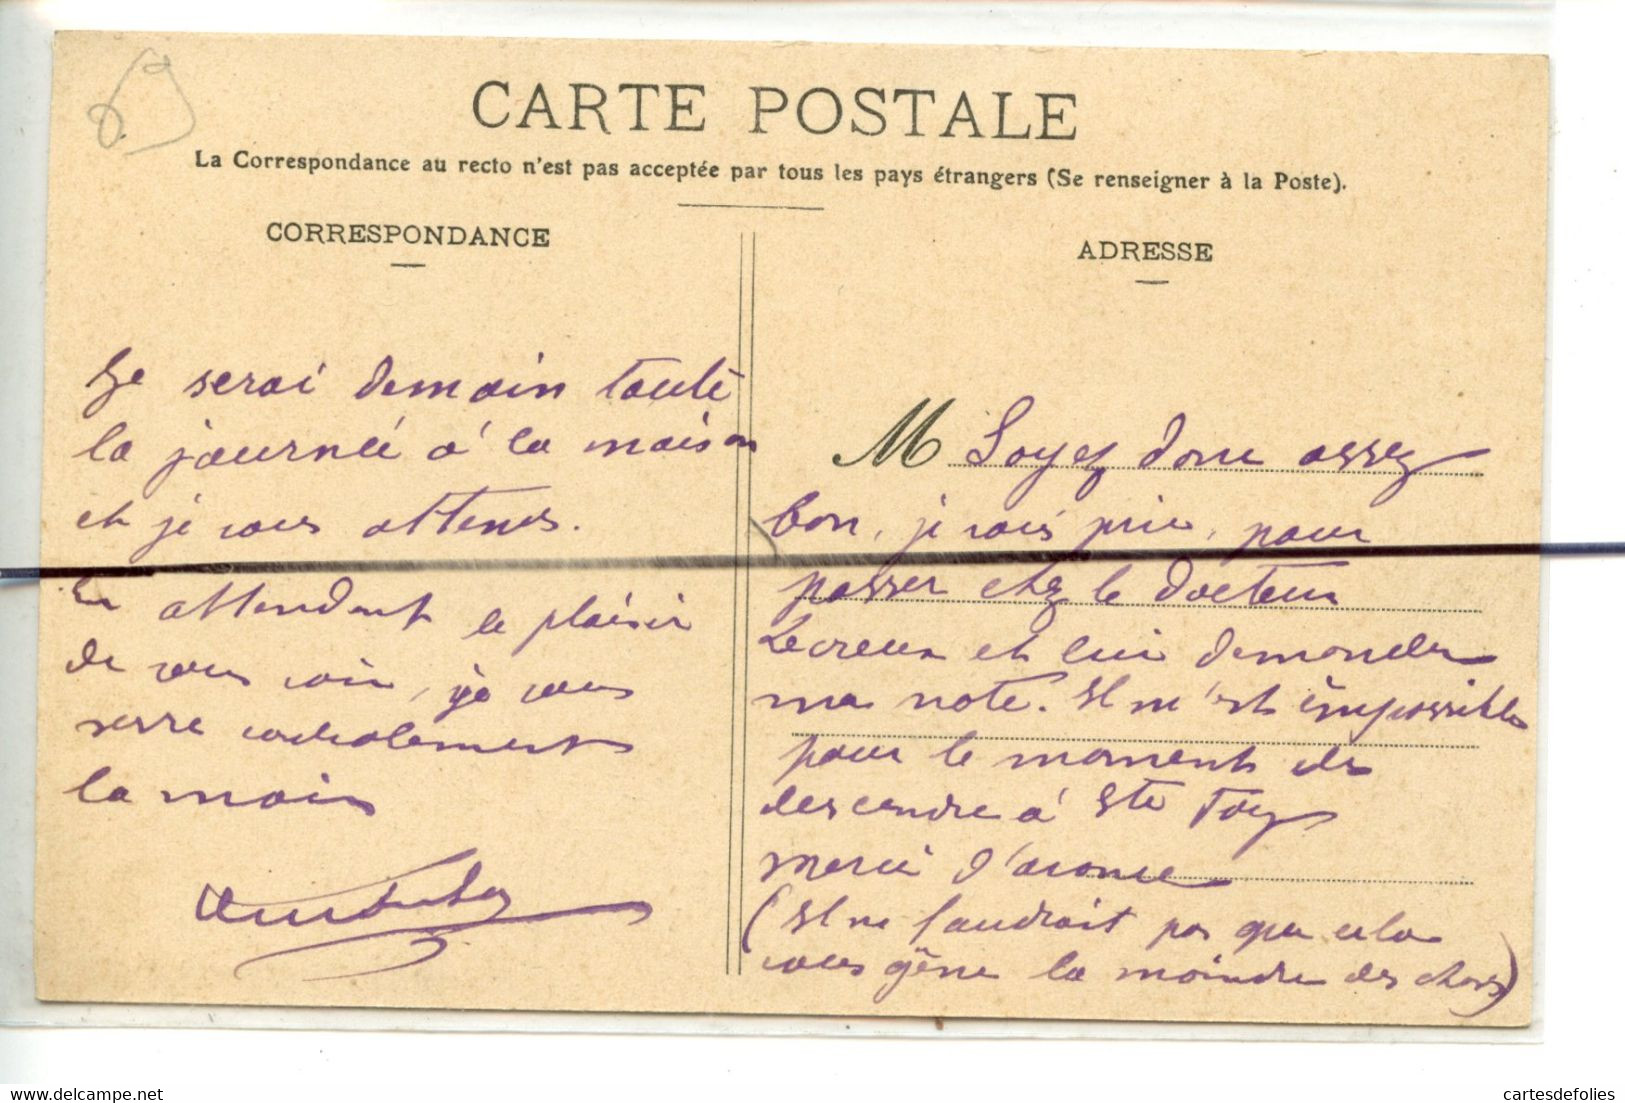 CARTE POSTALE
La Correspondance au recto n'est pas acceptée par tous les pays étrangers (Se renseigner à la Poste).
CORRESPONDANCE
Je serai demain toute
la journée à la maison
et je vous attends.
En attendant le plaisir
de vous voir, je vous
serre cordialement
la main
ADRESSE
M Soyez donc assez
bon, je vous prie, pour
passer chez le docteur
Lecreux et lui demander
ma note. Il m'est impossible
pour le moment de
descendre à Ste Foy
merci d'avance
(Il ne faudrait pas que cela
vous gêne la moindre des choses)
cartesdefolies